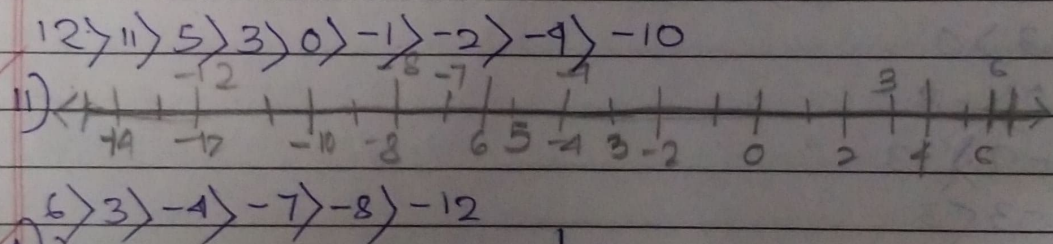 12>11>5>3>0>-1>-2>-4>-10
-12 -8 -7 -4 3 6
11) -14 -12 -10 -8 6 5 -4 3 -2 0 2 4 6
6>3>-4>-7>-8>-12